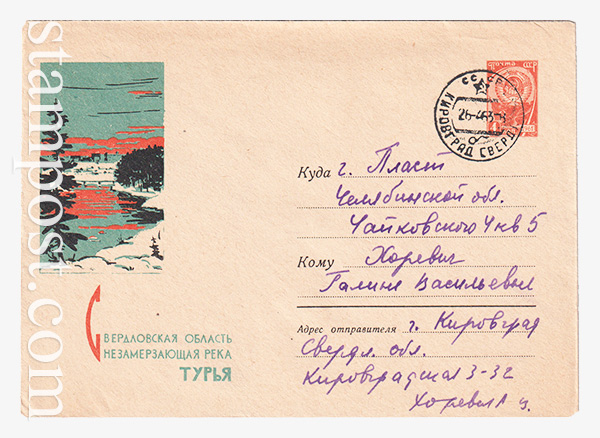 stampost.com
почта СССР
СССР
26-4 63-8
КИРОВГРАД СВЕРДЛ.
Куда г. Пласт
Челябинской обл.
Чайковского 4 кв 5
Кому Хоревич
Галине Васильевне
Адрес отправителя г. Кировград
Свердл. обл.
Кировградская 3-32
СВЕРДЛОВСКАЯ ОБЛАСТЬ
НЕЗАМЕРЗАЮЩАЯ РЕКА
ТУРЬЯ